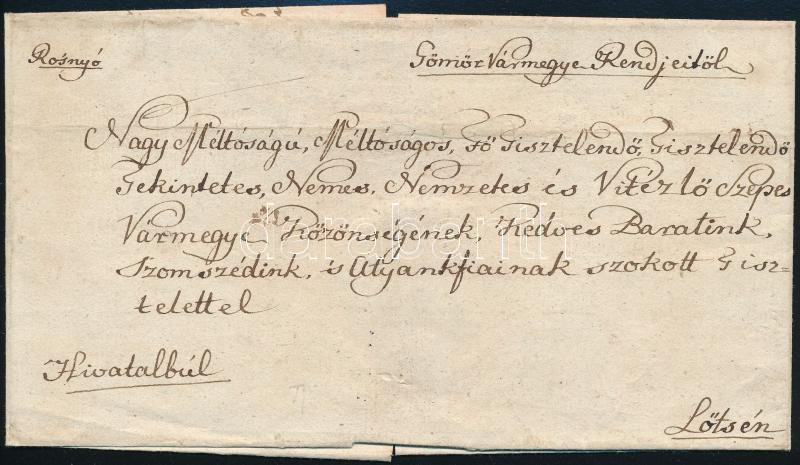 Rosnyó
Gömör Vármegye Rendjeitöl
Nagy Méltóságú, Méltóságos, Fő Tisztelendő, Tisztelendő
Tekintetes, Nemes, Nemzetes és Vitézlő Szepes
Vármegye Közönségének, Kedves Baratink,
Szomszédink, és Atyankfiainak szokott Tisz-
telettel
Hivatalbúl
Lőtsén
darabanth